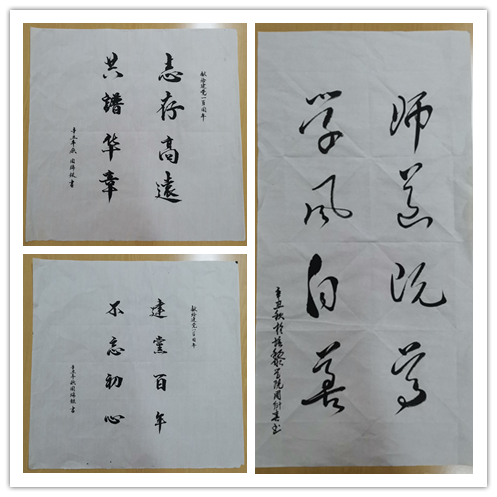 献给建党一百周年
志存高遠
共譜华章
辛丑年秋 周 书
献给建党一百周年
建黨百年
不忘初心
辛丑年秋周 书
师道既尊
学风自善
辛丑秋於培黎学院周 书